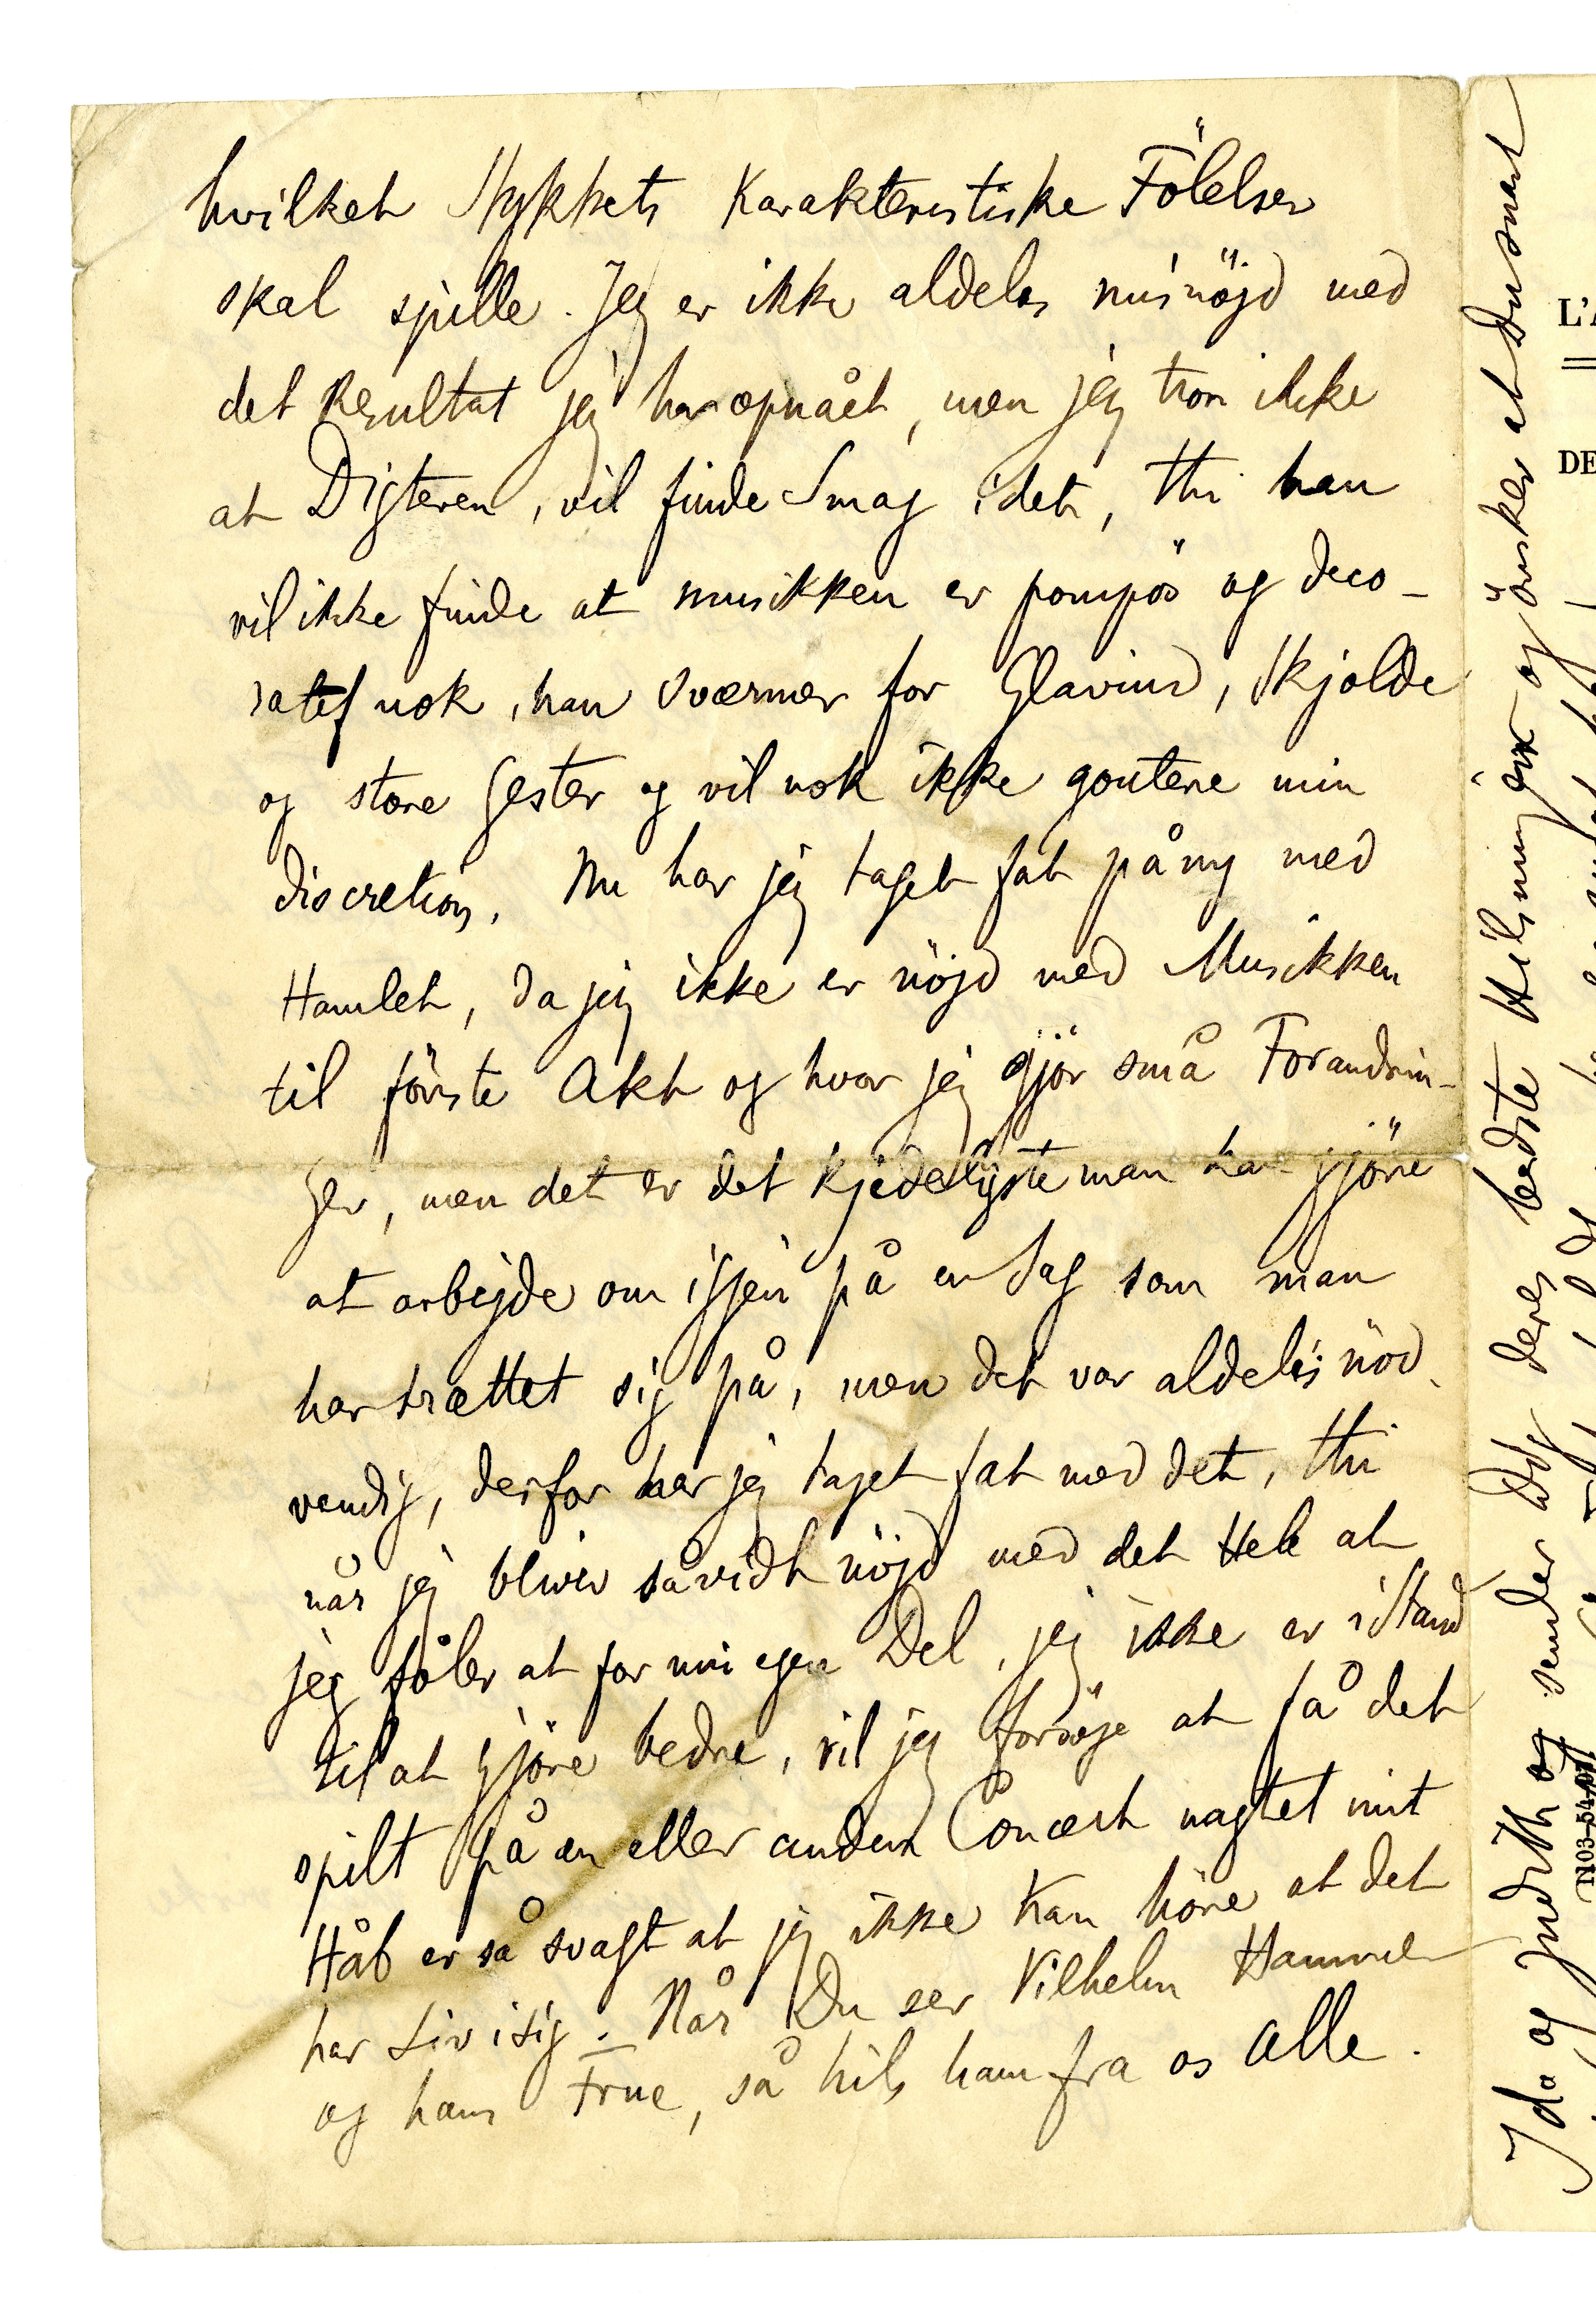 hvilket Stykkets Karakteristiske Fölelser
skal spille. Jeg er ikke aldeles misnöjd med
det Resultat jeg har opnået, men jeg tror ikke
at Digteren, vil finde Smag i det, thi han
vil ikke finde at musikken er pompös og deco-
ratif nok, han sværmer for Glavind, Skjolde
og store Gester og vil nok ikke goutere min
discretion. Nu har jeg taget fat på ny med
Hamlet, da jeg ikke er nöjd med Musikken
til förste Akt og hvor jeg gjör små Forandrin-
ger, men det er det kjedeligste man kan gjöre
at arbejde om igjen på en Sag som man
har trættet sig på, men det var aldeles nöd-
vendig, derfor har jeg taget fat med det, thi
når jeg bliver såvidt nöjd med det Hele at
jeg föler at for min egen Del, jeg ikke er i Stand
til at gjöre bedre, vil jeg forsöge at få det
spilt på en eller anden Concert uagtet mit
Håb er så svagt at jeg ikke kan höre at det
har Liv i sig. Når Du ser Vilhelm Hammer
og hans Frue, så hils ham fra os alle.
Ida og Judith og sender Dig deres bedste Hilsninger og önsker at Du snart
L'A
DE
1103-5407